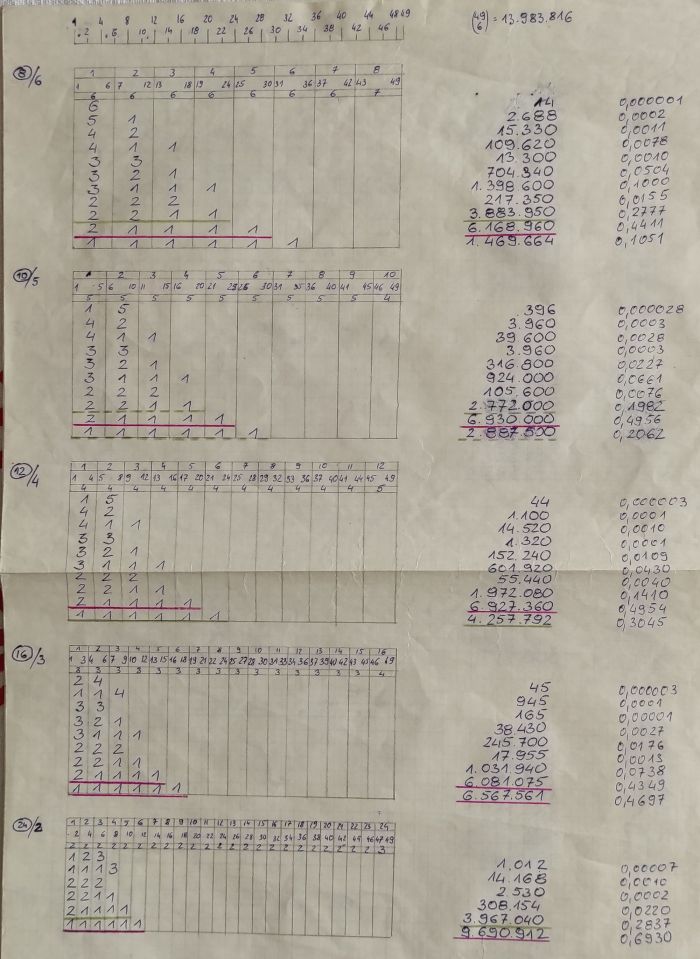 1 4 8 12 16 20 24 28 32 36 40 44 48 49
2 6 10 14 18 22 26 30 34 38 42 46
(49 6) = 13.983.816
8/6
1 2 3 4 5 6 7 8
1 6 7 12 13 18 19 24 25 30 31 36 37 42 43 49
6 6 6 6 6 6 6 7
6 14 0,000001
5 1 2.688 0,0002
4 2 15.330 0,0011
4 1 1 109.620 0,0078
3 3 13.300 0,0010
3 2 1 704.340 0,0504
3 1 1 1 1.398.600 0,1000
2 2 2 217.350 0,0155
2 2 1 1 3.883.950 0,2777
2 1 1 1 1 6.168.960 0,4411
1 1 1 1 1 1 1.469.664 0,1051
10/5
1 2 3 4 5 6 7 8 9 10
1 5 6 10 11 15 16 20 21 25 26 30 31 35 36 40 41 45 46 49
5 5 5 5 5 5 5 5 5 4
1 5 396 0,000028
4 2 3.960 0,0003
4 1 1 39.600 0,0028
3 3 3.960 0,0003
3 2 1 316.800 0,0227
3 1 1 1 924.000 0,0661
2 2 2 105.600 0,0076
2 2 1 1 2.772.000 0,1982
2 1 1 1 1 6.930.000 0,4956
1 1 1 1 1 1 2.887.500 0,2062
12/4
1 2 3 4 5 6 7 8 9 10 11 12
1 4 5 8 9 12 13 16 17 20 21 24 25 28 29 32 33 36 37 40 41 44 45 49
4 4 4 4 4 4 4 4 4 4 4 5
1 5 44 0,000003
4 2 1.100 0,0001
4 1 1 14.520 0,0010
3 3 1.320 0,0001
3 2 1 152.240 0,0109
3 1 1 1 601.920 0,0430
2 2 2 55.440 0,0040
2 2 1 1 1.972.080 0,1410
2 1 1 1 1 6.927.360 0,4954
1 1 1 1 1 1 4.257.792 0,3045
16/3
1 2 3 4 5 6 7 8 9 10 11 12 13 14 15 16
1 3 4 6 7 9 10 12 13 15 16 18 19 21 22 24 25 27 28 30 31 33 34 36 37 39 40 42 43 45 46 49
3 3 3 3 3 3 3 3 3 3 3 3 3 3 3 4
2 4 45 0,000003
1 1 4 945 0,0001
3 3 165 0,00001
3 2 1 38.430 0,0027
3 1 1 1 245.700 0,0176
2 2 2 17.955 0,0013
2 2 1 1 1.031.940 0,0738
2 1 1 1 1 6.081.075 0,4349
1 1 1 1 1 1 6.567.561 0,4697
24/2
1 2 3 4 5 6 7 8 9 10 11 12 13 14 15 16 17 18 19 20 21 22 23 24
2 4 6 8 10 12 14 16 18 20 22 24 26 28 30 32 34 36 38 40 42 44 46 47 49
2 2 2 2 2 2 2 2 2 2 2 2 2 2 2 2 2 2 2 2 2 2 2 3
1 2 3 1.012 0,00007
1 1 1 3 14.168 0,0010
2 2 2 2.530 0,0002
2 2 1 1 308.154 0,0220
2 1 1 1 1 3.967.040 0,2837
1 1 1 1 1 1 9.690.912 0,6930